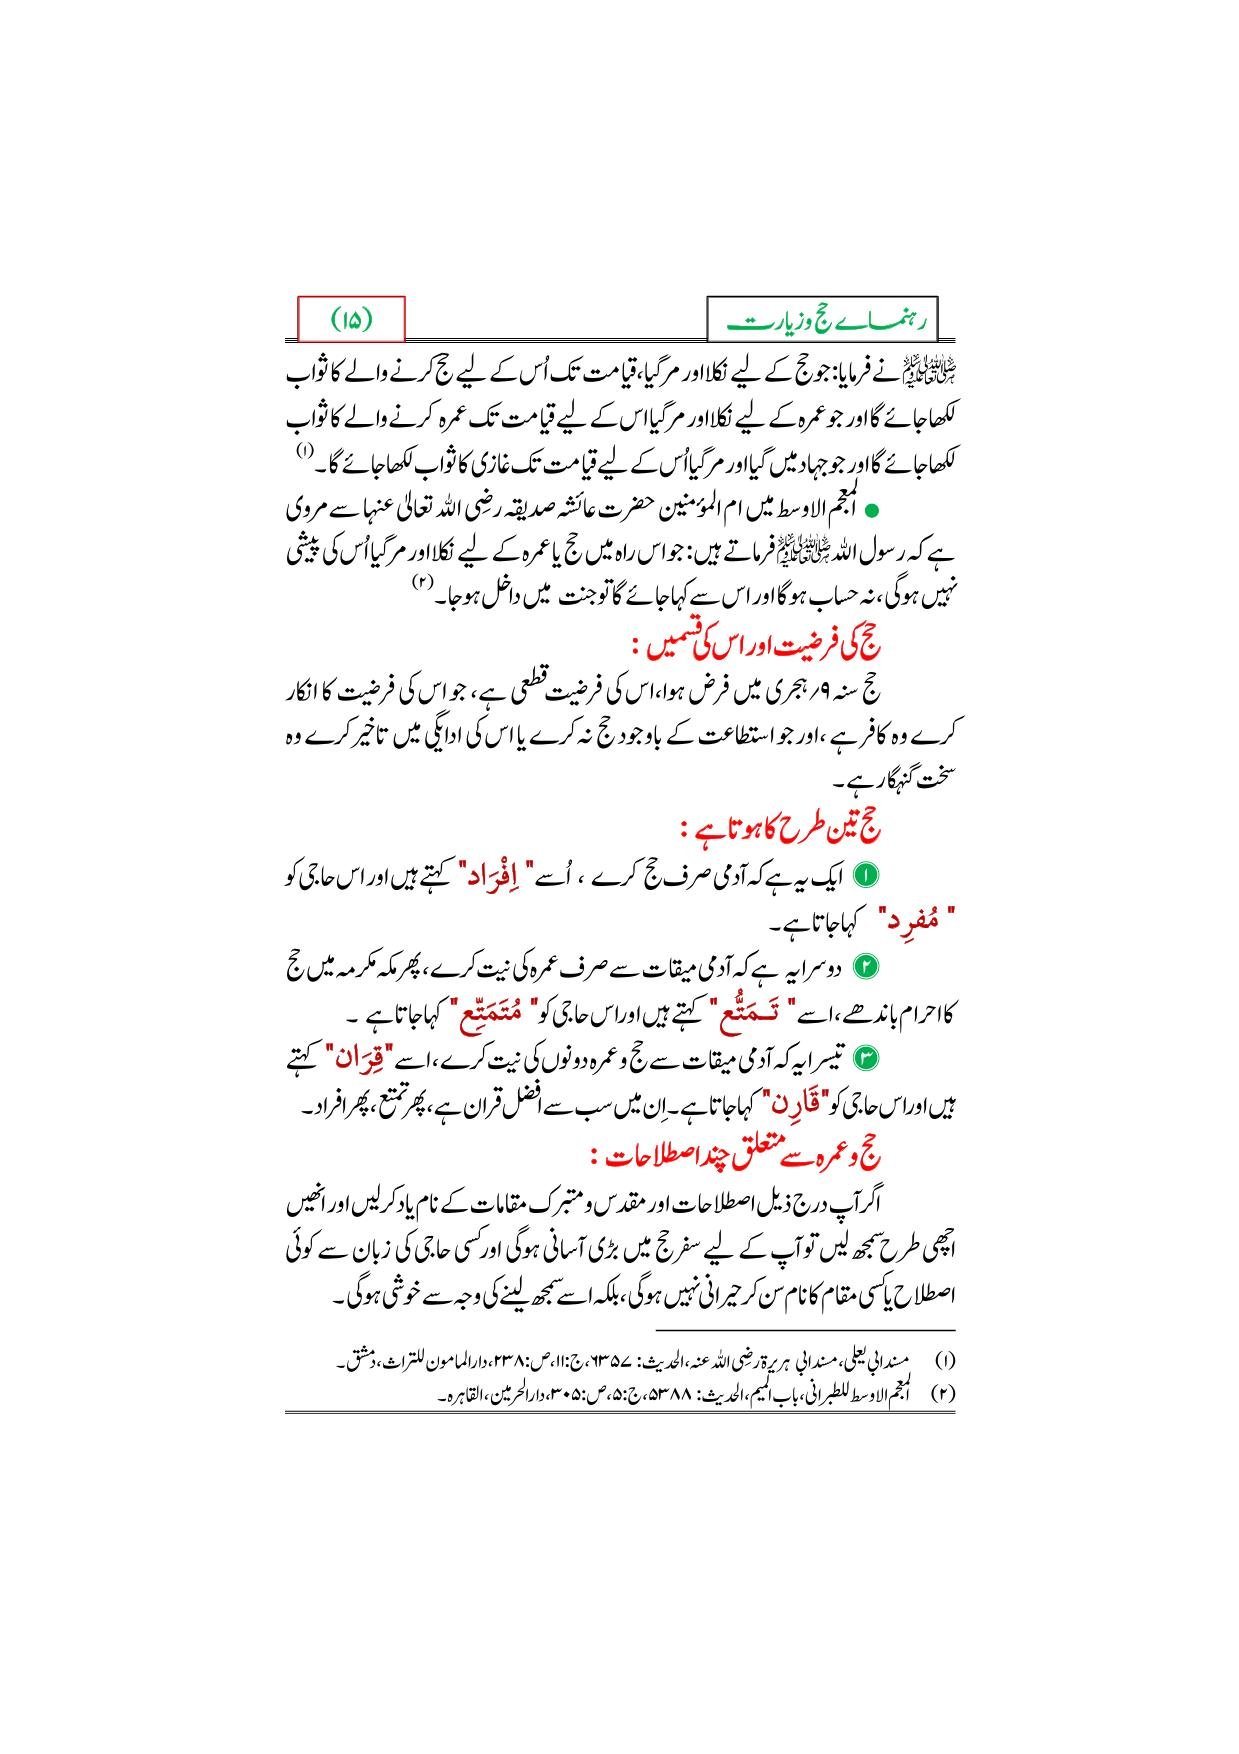 رہنمائے حج وزیارت
(۱۵)
ﷺ نے فرمایا: جو حج کے لیے نکلا اور مر گیا، قیامت تک اُس کے لیے حج کرنے والے کا ثواب
لکھا جائے گا اور جو عمرہ کے لیے نکلا اور مر گیا اس کے لیے قیامت تک عمرہ کرنے والے کا ثواب
لکھا جائے گا اور جو جہاد میں گیا اور مر گیا اُس کے لیے قیامت تک غازی کا ثواب لکھا جائے گا۔(۱)
● المعجم الاوسط میں ام المؤمنین حضرت عائشہ صدیقہ رضی اللہ تعالیٰ عنہا سے مروی
ہے کہ رسول اللہ ﷺ فرماتے ہیں: جو اس راہ میں حج یا عمرہ کے لیے نکلا اور مر گیا اُس کی پیشی
نہیں ہوگی، نہ حساب ہوگا اور اس سے کہا جائے گا تو جنت میں داخل ہو جا۔(۲)
حج کی فرضیت اور اس کی قسمیں :
حج سنہ ۹؍ ہجری میں فرض ہوا، اس کی فرضیت قطعی ہے، جو اس کی فرضیت کا انکار
کرے وہ کافر ہے، اور جو استطاعت کے باوجود حج نہ کرے یا اس کی ادایگی میں تاخیر کرے وہ
سخت گنہگار ہے۔
حج تین طرح کا ہوتا ہے :
۱ ایک یہ ہے کہ آدمی صرف حج کرے ، اُسے "اِفْرَاد" کہتے ہیں اور اس حاجی کو
"مُفرِد" کہا جاتا ہے۔
۲ دوسرا یہ ہے کہ آدمی میقات سے صرف عمرہ کی نیت کرے، پھر مکہ مکرمہ میں حج
کا احرام باندھے، اسے "تَـمَتُّع" کہتے ہیں اور اس حاجی کو "مُتَمَتِّع" کہا جاتا ہے ۔
۳ تیسرا یہ کہ آدمی میقات سے حج و عمرہ دونوں کی نیت کرے، اسے "قِرَان" کہتے
ہیں اور اس حاجی کو "قَارِن" کہا جاتا ہے۔ اِن میں سب سے افضل قران ہے، پھر تمتع، پھر افراد۔
حج و عمرہ سے متعلق چند اصطلاحات :
اگر آپ درج ذیل اصطلاحات اور مقدس و متبرک مقامات کے نام یاد کرلیں اور انھیں
اچھی طرح سمجھ لیں تو آپ کے لیے سفر حج میں بڑی آسانی ہوگی اور کسی حاجی کی زبان سے کوئی
اصطلاح یا کسی مقام کا نام سن کر حیرانی نہیں ہوگی، بلکہ اسے سمجھ لینے کی وجہ سے خوشی ہوگی۔
(۱) مسند ابی یعلی، مسند ابی ہریرۃ رضی اللہ عنہ، الحدیث: ۶۳۵۷، ج:۱۱، ص:۲۳۸، دار المامون للتراث، دمشق۔
(۲) المعجم الاوسط للطبرانی، باب المیم، الحدیث: ۵۳۸۸، ج:۵، ص:۳۰۵، دار الحرمین، القاہرہ۔